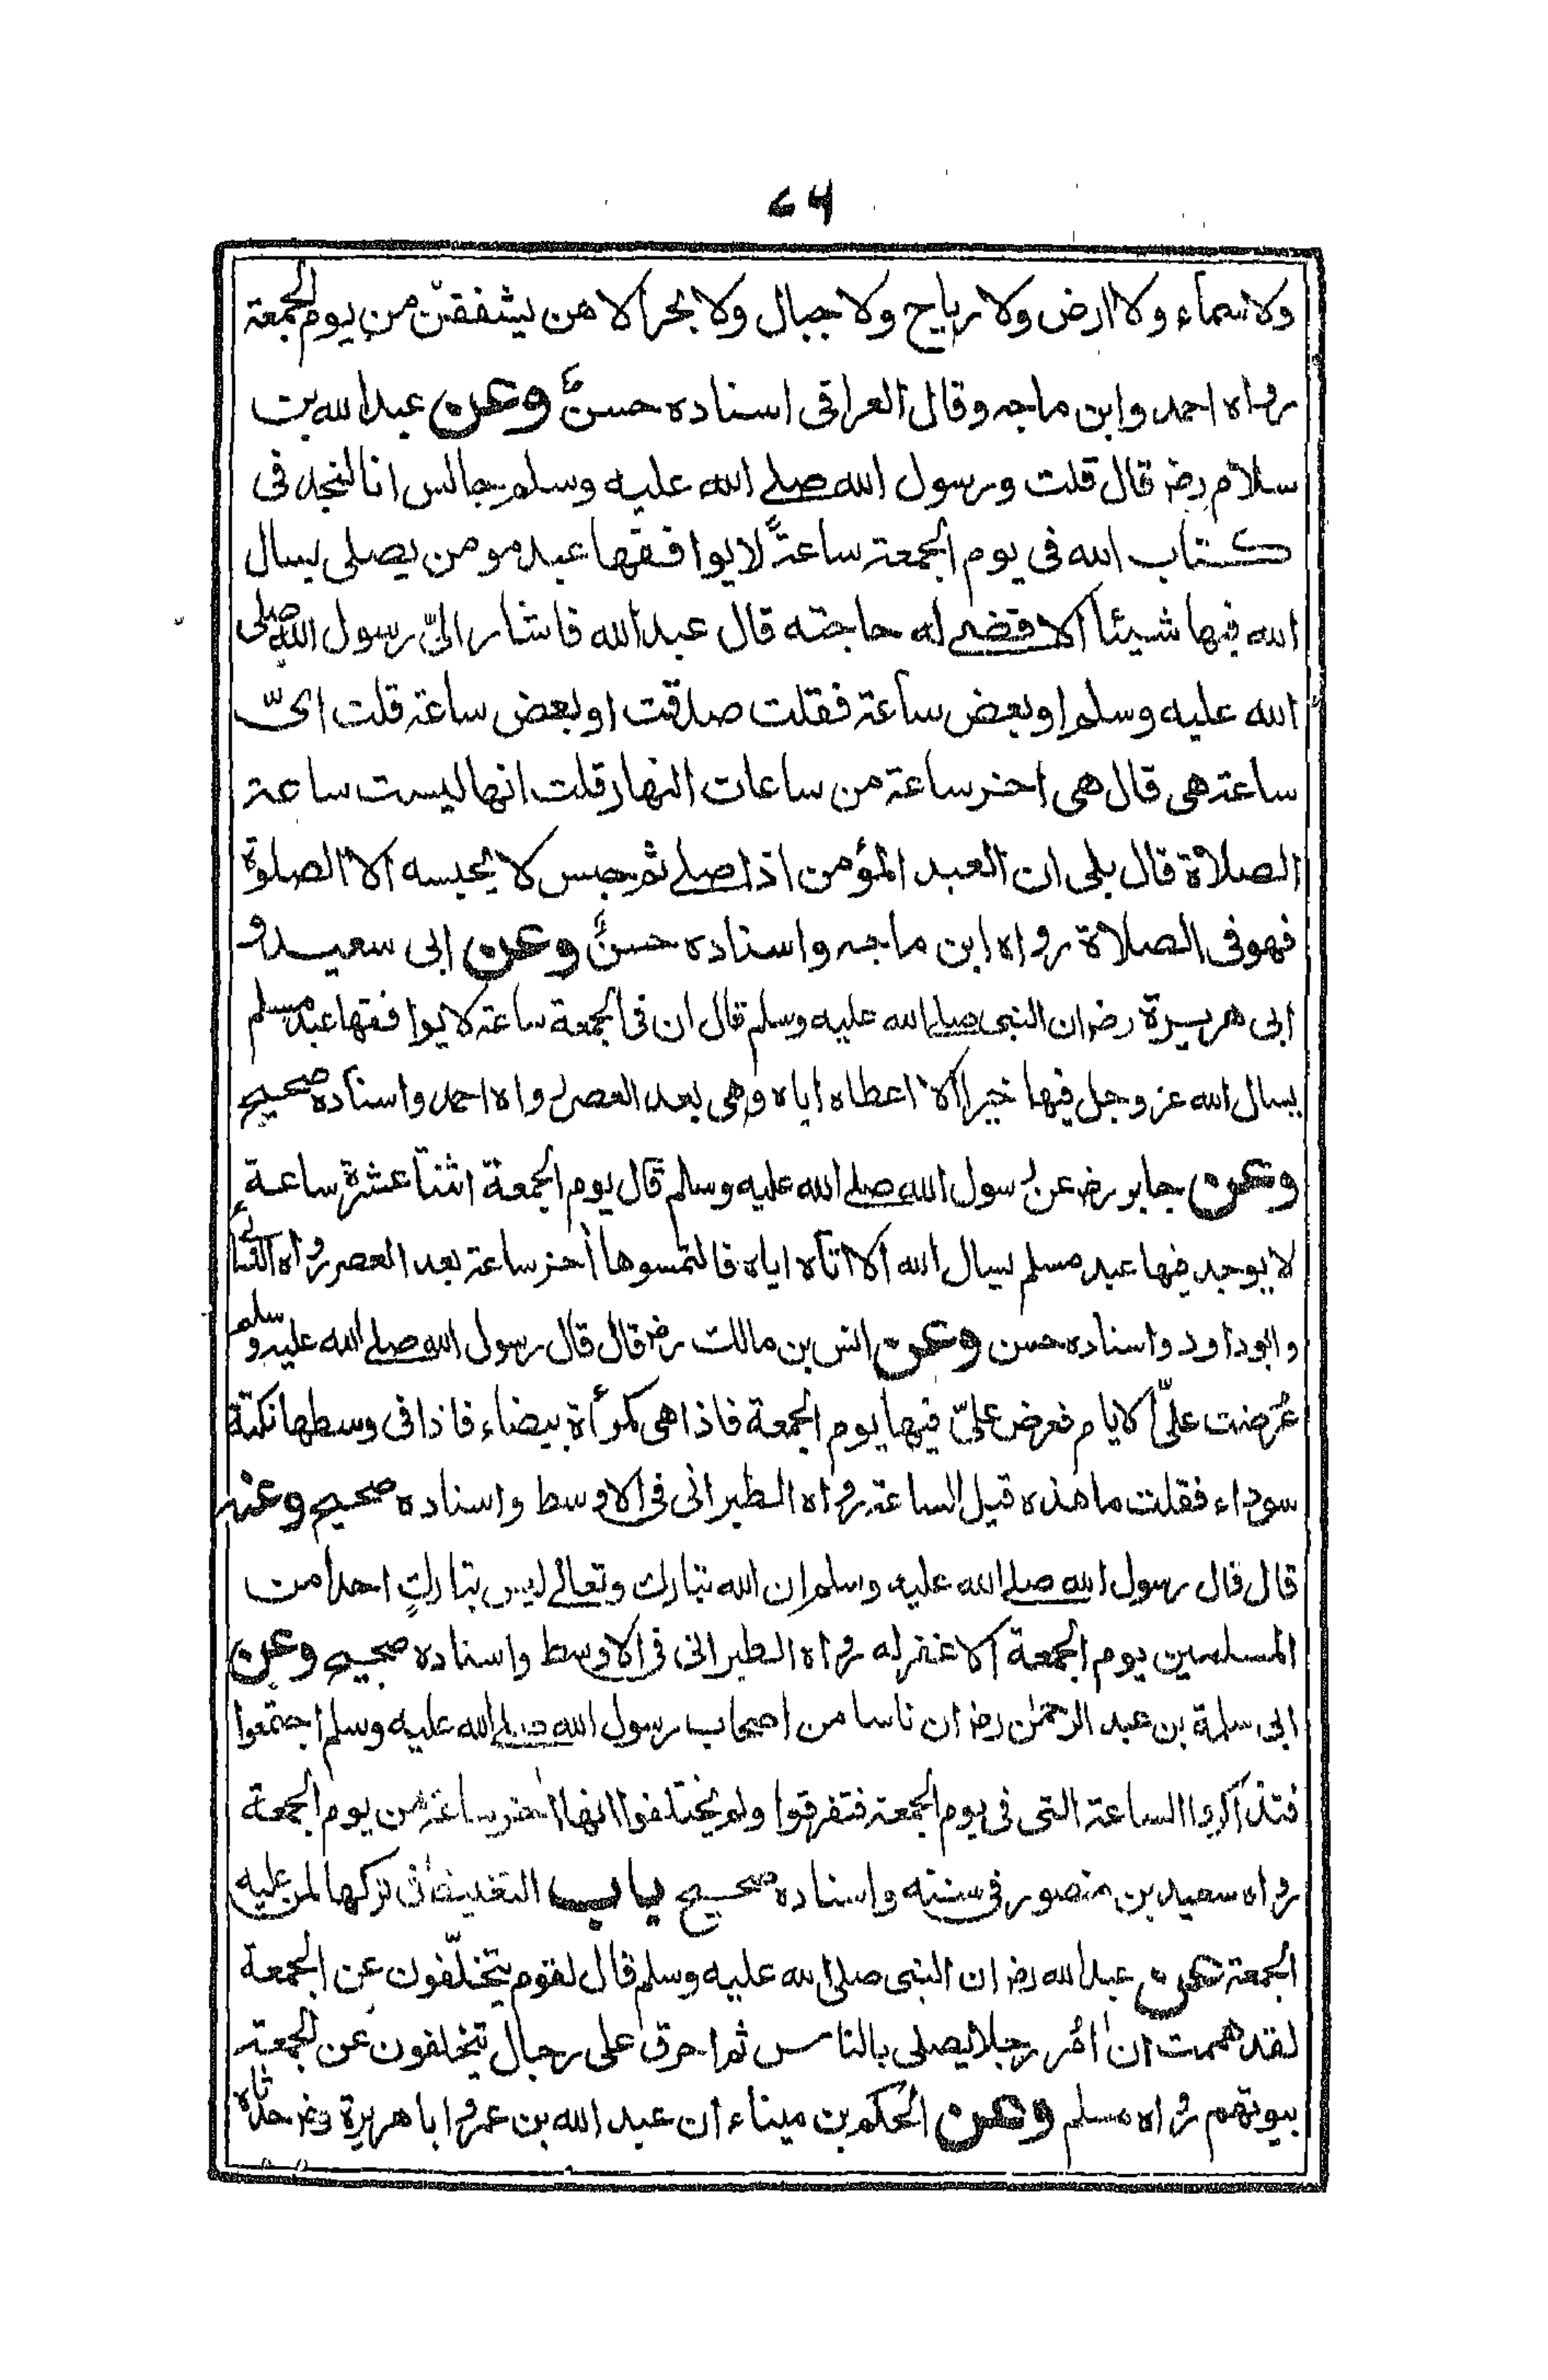 ٧٦
ولا سماء ولا ارض ولا رياح ولا جبال ولا بحر الا هن يشفقن من يوم الجمعة
رواه احمد وابن ماجه وقال العراقى اسناده حسنٌ وعن عبد الله بن
سلام رضـ قال قلت ورسول الله صلى الله عليه وسلم جالس انا لنجد فى
كتاب الله فى يوم الجمعة ساعةً لا يوافقها عبد مومن يصلى يسال
الله فيها شيئا الا قضى له حاجته قال عبد الله فاشار الىّ رسول الله صلى
الله عليه وسلم او بعض ساعة فقلت صدقت او بعض ساعة قلت اىّ
ساعة هى قال هى اخر ساعة من ساعات النهار قلت انها ليست ساعة
الصلاة قال بلى ان العبد المؤمن اذا صلى ثم جبس لا يحبسه الا الصلوة
فهو فى الصلاة رواه ابن ماجه واسناده حسنٌ وعن ابى سعيد و
ابى هريرة رضـ ان النبى صلى الله عليه وسلم قال ان فى الجمعة ساعة لا يوافقها عبد مسلم
يسال الله عز وجل فيها خيرا الا اعطاه اياه وهى بعد العصر رواه احمد واسناده صحيح
وعن جابر رضـ عن رسول الله صلى الله عليه وسلم قال يوم الجمعة اثنتا عشرة ساعة
لا يوجد فيها عبد مسلم يسال الله الا اتاه اياه فالتمسوها أخر ساعة بعد العصر رواه النسائى
وابو داود واسناده حسن وعن انس بن مالك رضـ قال قال رسول الله صلى الله عليه وسلم
عُرضت علىّ الايام فعرض علىّ فيها يوم الجمعة فاذا هى كمرأة بيضاء فاذا فى وسطها نكتة
سوداء فقلت ما هذه قيل الساعة رواه الطبرانى فى الاوسط واسناده صحيح وعنه
قال قال رسول الله صلى الله عليه وسلم ان الله تبارك وتعالى ليس بتاركٍ احدا من
المسلمين يوم الجمعة الا غفر له رواه الطبرانى فى الاوسط واسناده صحيح وعن
ابى سلمة بن عبد الرحمٰن رضـ ان ناسا من اصحاب رسول الله صلى الله عليه وسلم اجتمعوا
فتذاكروا الساعة التى فى يوم الجمعة فتفرقوا ولم يختلفوا انها اخر ساعة من يوم الجمعة
رواه سعيد بن منصور فى سننه واسناده صحيح باب التغليظ فى تركها لمن عليه
الجمعة عن عبد الله رضـ ان النبى صلى الله عليه وسلم قال لقوم يتخلّفون عن الجمعة
لقد هممت ان اٰمر رجلا يصلى بالناس ثم احرق على رجال يتخلفون عن الجمعة
بيوتهم رواه مسلم وعن الحكم بن ميناء ان عبد الله بن عمر وابا هريرة رضـ حدثاه